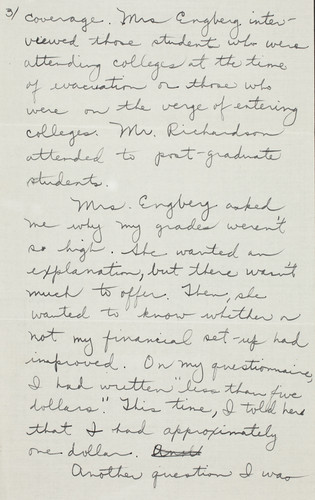 3/
coverage. Mrs Engberg inter-
viewed those student who were
attending colleges at the time
of evacuation or those who
were on the verge of entering
colleges. Mr. Richardson
attended to post-graduate
students.
Mrs. Engberg asked
me why my grades weren't
so high. She wanted an
explanation, but there wasn't
much to offer. Then, she
wanted to know whether or
not my financial set-up had
improved. On my questionnaire,
I had written "less than five
dollars." This time, I told her
that I had approximately
one dollar.
Another question I was